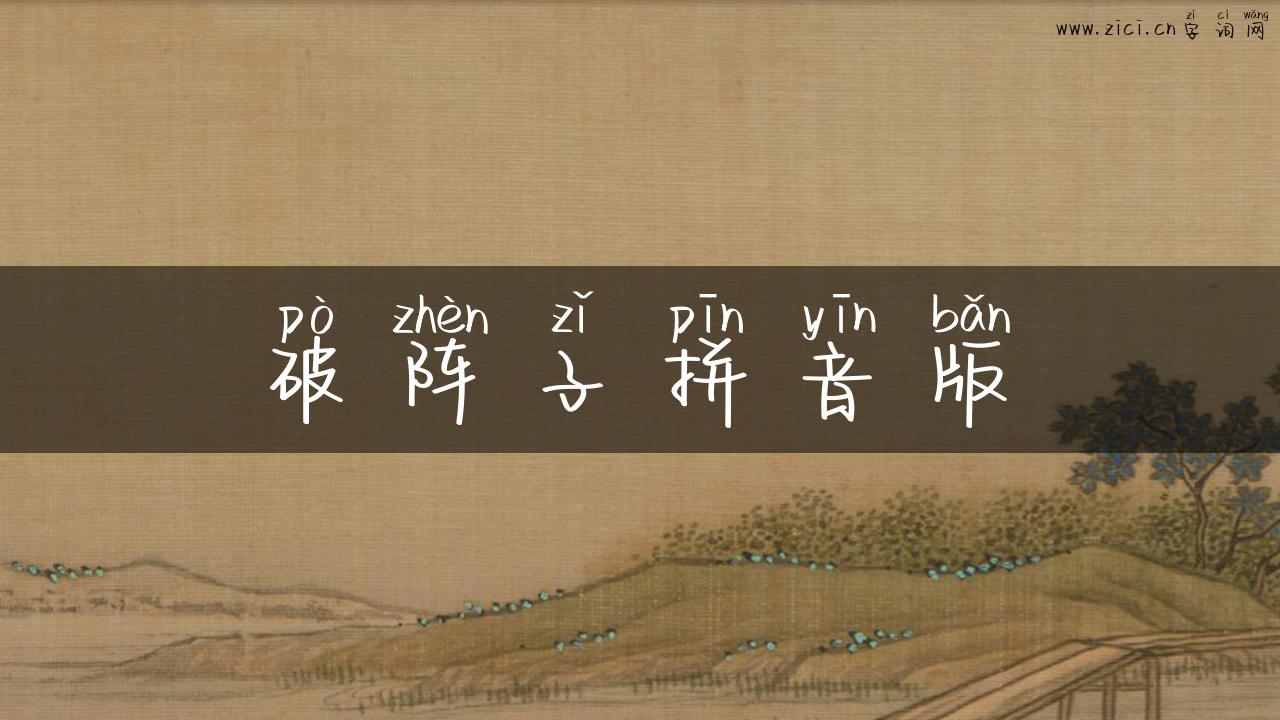 zì cí wǎng
www.zici.cn 字词网
pò zhèn zǐ pīn yīn bǎn
破阵子拼音版